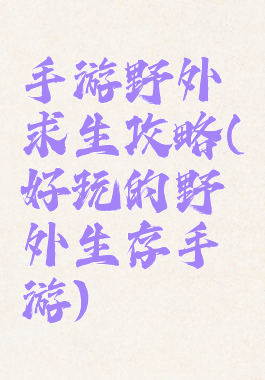 手游野外
求生攻略(
好玩的野
外生存手
游)